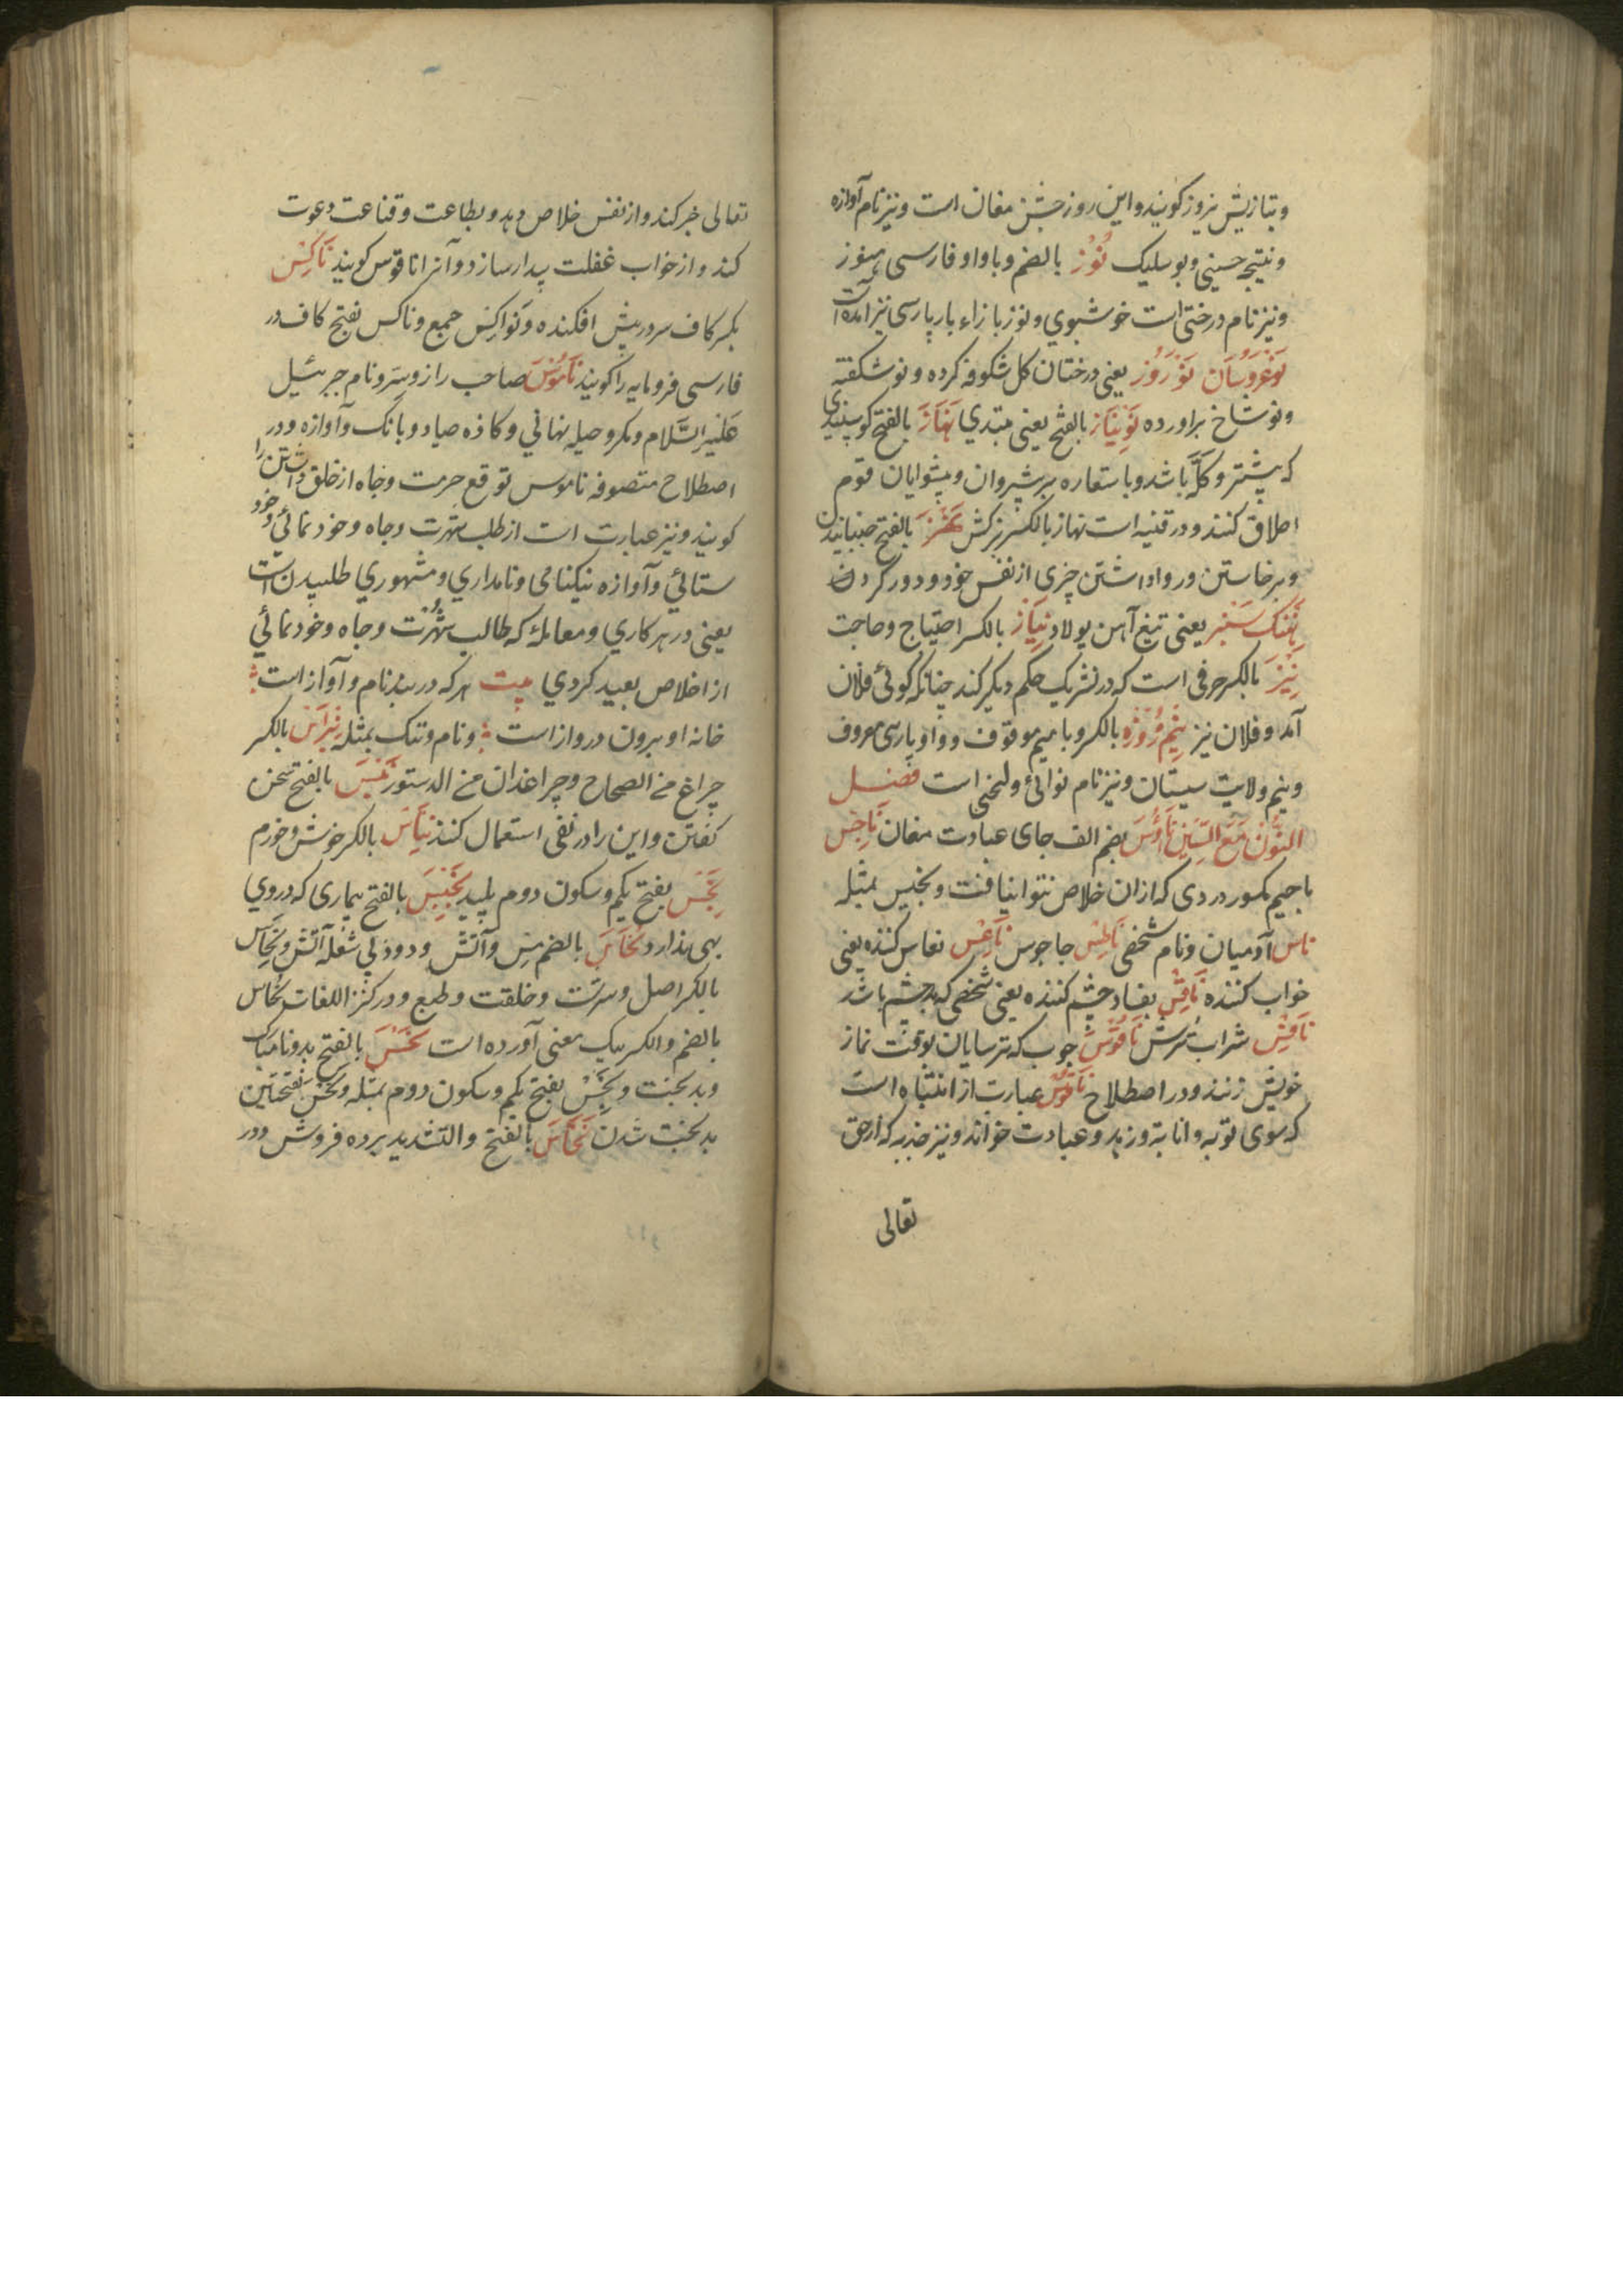 وبتازیش نیروز کویند واین روز جشن مغان است ونیز نام آوازه
ونتیجه حسینی وبوسلیک نُوْز بالضم وباواو فارسی هنوز
ونیز نام درختی است خوشبوی ونوز بازاء پارسی نیز آمده است
نَوْعَرُوسَان نَوْرَوُز یعنی درختان کل شکوفه کرده ونوشکفته
ونوشاخ براورده نَوْنِیَاز بالفتح یعنی مبتدی نَهَاَز بالفتح کوسپندی
که پیشتر وکلّه باشد وباستعاره بر پیشروان وپیشوایان قوم
اطلاق کنند ودر قنیه است نهاز بالکسر بزکش نَهْز بالفتح جنبانیدن
وبرخاستن وروا داشتن چیزی از نفس خود ودور کردن
نِهَنک سَبْز یعنی تیغ آهن پولاد نِیَاز بالکسر احتیاج وحاجت
نِیْز بالکسر حرفی است که در تشریک حکم دیکر کند چنانکه کوئی فلان
آمد وفلان نیز نِیْمرُوْز بالکسر وبا میم موقوف وواو پارسی معروف
ونیم ولایت سیستان ونیز نام نوائی ولحنی است فصل
النُّوْن مَعَ السِّیْن نَاؤُس بضم الف جای عبادت مغان نَاجِس
باجیم مکسور دردی که ازان خلاص نتوان یافت ونجیس بمثله
ناس آدمیان ونام شخصی نَاطِس جاجوس نَاعِس نعاس کننده یعنی
خواب کننده نَافِس بفساد چشم کننده یعنی شخصی که بدچشم باشد
نَاقِس شراب ترش نَاقُوس چوب که ترسایان بوقت نماز
خویش زنند ودر اصطلاح نَاقُوس عبارت از انتباه است
که سوی توبه وانابة وزهد وعبادت خواند ونیز جذبه که از حق
تعالی
تعالی خبر کند واز نفس خلاص دهد وبطاعت وقناعت دعوت
کند واز خواب غفلت بیدار سازد وآنرا ناقوس کویند نَاکِس
بکسر کاف سر در پیش افکنده ونَواکِس جمع وناکس بفتح کاف در
فارسی فرومایه را کویند نَامُوْس صاحب راز وسرّ ونام جبرئیل
علیه السّلام ومکر وحیله نهانی وکازه صیاد وبانک وآوازه ودر
اصطلاح متصوفه ناموس توقع حرمت وجاه از خلق داشتن را
کویند ونیز عبارت است از طلب شهرت وجاه وخودنمائی وخود
ستائی وآوازه نیکنامی ونامداری ومشهوری طلبیدن است
یعنی در هر کاری ومعامله که طالب شُهْرت وجاه وخودنمائی
از اخلاص بعید کردی بیت هر که در بند نام وآواز است
خانه او برون دروازست ونام وننک بمثله نِبْرَاس بالکسر
چراغ من الصحاح وچراغدان من الدستور نَبْس بالفتح سخن
کفتن واین را در نفی استعمال کنند نِبَاس بالکسر خوش وخرم
نَجْس بفتح یکم وسکون دوم پلید نَجِیْس بالفتح بیماری که در وی
بهی ندارد نُحَاس بالضم مس وآتش ودود بی شعله آتش ونِحَاس
بالکسر اصل وسرشت وخلقت وطبع ودر کنز اللغات نحاس
بالضم والکسر بیک معنی آورده است نَحْس بالفتح بد ونامبارک
وبدبخت ونَحْس بفتح یکم وسکون دوم بمثله ونحس بفتحتین
بدبخت شدن نَخَّاس بالفتح والتشدید برده فروش ودر